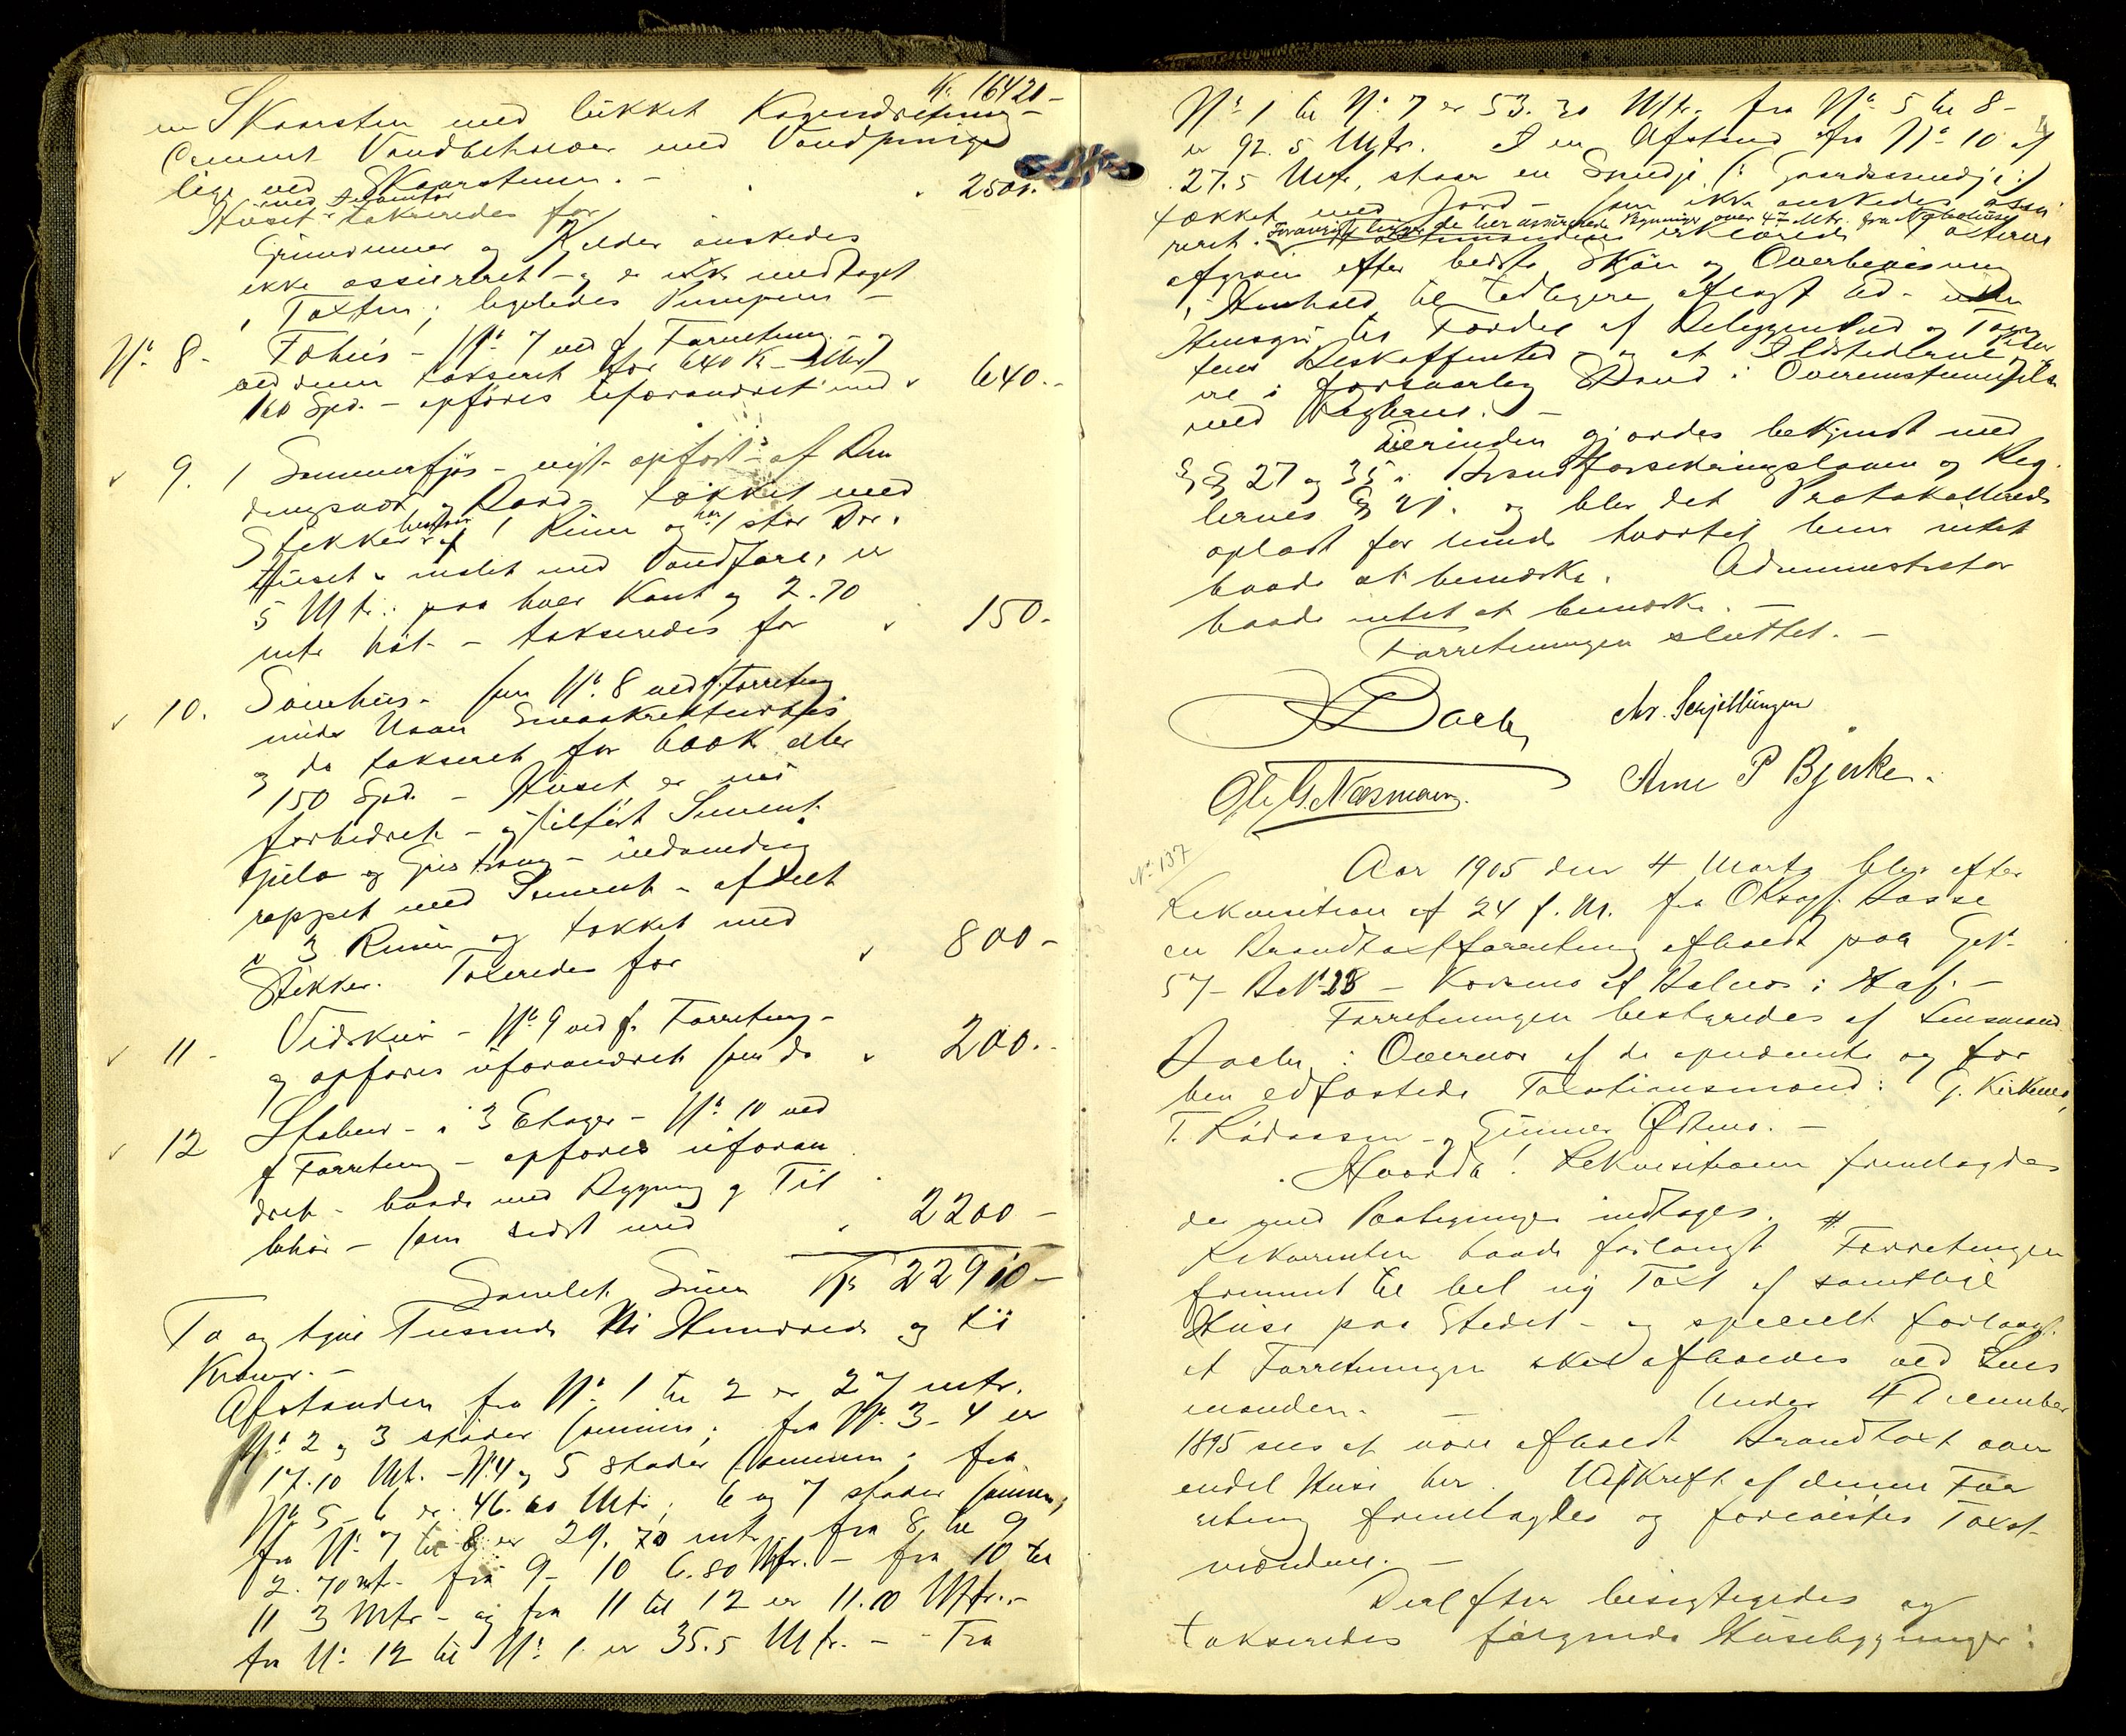 Kr. 16420-
en Skorsten med lukket Kogeindretning -
Cement Vandbeholder med Vandspring
lige ved Skorstenen. - " 2500.
med Inventar
Huset takseredes for
Grundmur og Kjelder önskedes
ikke assureret - og er ikke medtaget
i Taxten; ligeledes Pumpen -
No. 8 - Fohus - No. 7 ved f. Forretning - og
ved denne takseret for 640 K - eller
160 Spd. - opföres uforandret med " 640. -
" 9. 1 Sommerfjös - nyst opfört - af Bin
dingsværk og Bord - tækket med
Stikker bestaar af 1 Rum og har 1 stor Dør.
Huset er malet med Vandfarve, er
5 Mtr. paa hver Kant og 2.70
mtr höit - takseredes for " 150 -
" 10. Svinehus - som No. 8 ved f. Forretning
under Navn Smaakreaturhus
og da takseret for 600 K eller
150 Spd. - Huset er nu
forbedret - og tilfört Sement
gulv og Gristraug - indvendig
rappet med Sement - afdelt
i 3 Rum og tækket med
Stikker. Taxeredes for " 800 -
" 11 - Vedskur - No. 9 ved f. Forretning -
og opföres uforandret som da " 200. -
" 12 Stabur - i 3 Etager - No. 10 ved
f. Forretning - opföres uforan
dret - baade med Bygning og Til
behör - som sidst med " 2200 -
Samlet Sum Kr. 22910 -
To og tyve Tusende Ni Hundrede og ti
Kroner. -
Afstanden fra No. 1 til 2 er 27 mtr.
No. 2 og 3 stöder sammen; fra No. 3 - 4 er
17.10 Mt. - No. 4 og 5 stöder sammen; fra
No. 5 - 6 er 46.60 Mtr; 6 og 7 stöder sammen;
fra No. 7 til 8 er 29.70 mtr fra 8 til 9
2.70 mt. fra 9 - 10 6.80 Mtr. - fra 10 til
11 3 Mtr - og fra 11 til 12 er 11.10 Mtr. -
fra No. 12 til No. 1 er 35.5 Mtr. - Fra
No. 1 til No. 7 er 53.30 Mtr. fra No. 5 til 8 -
er 92.5 Mtr. I en Afstand fra No. 10 af
27.5 Mtr, staar en Smedje (: Gaardssmedje :)
tækket med Jord - som ikke önskedes assu
reret. Forövrigt ligger de her assurerede Bygninger over 47 Mtr. fra Nabohuse
erklærede Taxterne
afgivne efter bedste Skjön og Overbevisning
i Henhold til tidligere aflagt Ed - uden
Hensyn til Fordel af Beliggenhed og Tomtens
tens Beskaffenhed - og at Ildstederne og Piber
ere i forsvarlig Stand i Overensstemmelse
med Reglerne. -
Eierinden gjordes bekjendt med
§§ 27 og 35 i Brandforsikringsloven og Reg
lernes § 21. og blev det Protokollerede
oplæst for hende hvortil hun intet
havde at bemærke. Administrator
havde intet at bemærke. -
Forretningen sluttet. -
Bach Chr. Schjöllungen
Ole G. Næsmoen. Arne P Bjerke.
No. 137
Aar 1905 den 4 Marts blev efter
Rekvisition af 24 f. M. fra O.Krags. Basse
en Brandtaxtforretning afholdt paa GrN.
57 - BrN. 28 - Korsmo af Balnes i Haf. -
Forretningen bestyredes af Lensmand
Bach i Overvær af de opnævnte og for
hen edfæstede Taxationsmænd: G. Kirkemo,
T. Rådaasen - og Gunner Ødemo. -
Hvorda! Rekvisitionen fremlagdes
der med Paategninger indtages. #
Rekvirenten havde forlangt Forretningen
fremmet til hel ny Taxt af samtlige
Huse paa Stedet - og specielt forlangt
at Forretningen skal afholdes ved Lens
manden. - Under 4 December
1895 sees at være afholdt Brandtaxt over
endel Huse her. Udskrift af denne For
retning fremlagdes og forevistes Taxt
mændene. -
Derefter besigtigedes og
takseredes fölgende Husebygninger: